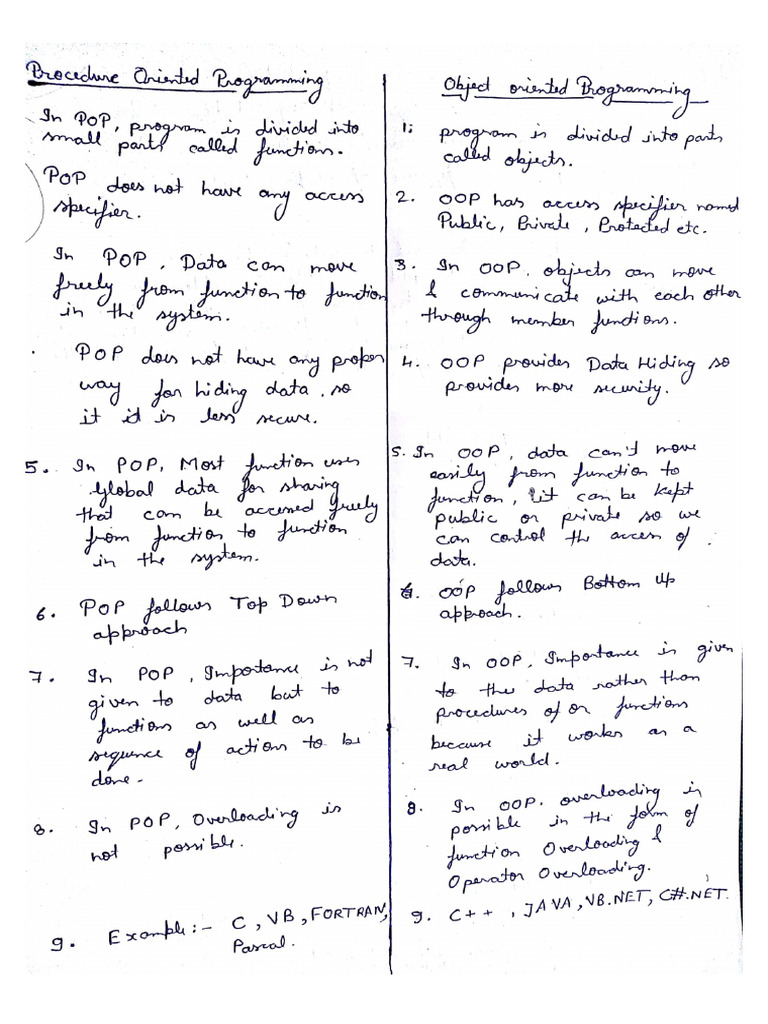 Procedure Oriented Programming
In POP, program is divided into
small parts called functions.
POP does not have any access
specifier.
In POP, Data can move
freely from function to function
in the system.
POP does not have any proper
way for hiding data, so
it it is less secure.
5. In POP, Most function uses
Global data for sharing
that can be accessed freely
from function to function
in the system.
6. POP follows Top Down
approach
7. In POP, Importance is not
given to data but to
functions as well as
sequence of actions to be
done.
8. In POP, Overloading is
not possible.
9. Example:- C, VB, FORTRAN,
Pascal.
Object oriented Programming
1; program is divided into parts
called objects.
2. OOP has access specifier named
Public, Private, Protected etc.
3. In OOP, objects can move
& communicate with each other
through member functions.
4. OOP provides Data Hiding so
provides more security.
5. In OOP, data can't move
easily from function to
function, it can be kept
public or private so we
can control the access of
data.
6. OOP follows Bottom Up
approach.
7. In OOP, Importance is given
to the data rather than
procedures of or functions
because it works as a
real world.
8. In OOP, overloading is
possible in the form of
function Overloading &
Operator Overloading.
9. C++, JAVA, VB.NET, C#.NET.